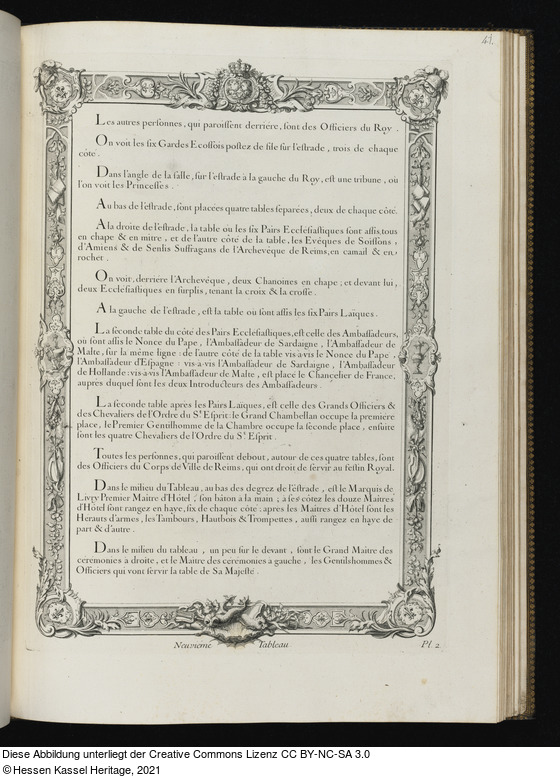 41.
Les autres personnes, qui paroissent derriere, sont des Officiers du Roy.
On voit les six Gardes Ecossois postez de file sur l'estrade, trois de chaque
côte.
Dans l'angle de la salle, sur l'estrade a la gauche du Roy, est une tribune, ou
l'on voit les Princesses.
Au bas de l'estrade, sont placées quatre tables separées, deux de chaque côté.
A la droite de l'estrade, la table ou les six Pairs Ecclesiastiques sont assis, tous
en chape & en mitre, et de l'autre côté de la table, les Evêques de Soissons,
d'Amiens & de Senlis Suffragans de l'Archevêque de Reims, en camail & en
rochet.
On voit, derriére l'Archevêque, deux Chanoines en chape; et devant lui,
deux Ecclesiastiques en surplis, tenant la croix & la crosse.
A la gauche de l'estrade, est la table ou sont assis les six Pairs Laiques.
La seconde table du côté des Pairs Ecclesiastiques, est celle des Ambassadeurs,
ou sont assis le Nonce du Pape, l'Ambassadeur de Sardaigne, l'Ambassadeur de
Malte, sur la même ligne: de l'autre côté de la table vis-à-vis le Nonce du Pape,
l'Ambassadeur d'Espagne: vis-à-vis l'Ambassadeur de Sardaigne, l'Ambassadeur
de Hollande: vis-à-vis l'Ambassadeur de Malte, est placé le Chancelier de France,
aupres duquel sont les deux Introducteurs des Ambassadeurs.
La seconde table après les Pairs Laïques, est celle des Grands Officiers &
des Chevaliers de l'Ordre du St Esprit: le Grand Chambellan occupe la premiere
place, le Premier Gentilhomme de la Chambre occupe la seconde place, ensuite
sont les quatre Chevaliers de l'Ordre du St Esprit.
Toutes les personnes, qui paroissent debout, autour de ces quatre tables, sont
des Officiers du Corps de Ville de Reims, qui ont droit de servir au festin Royal.
Dans le milieu du Tableau, au bas des degrez de l'estrade, est le Marquis de
Livry Premier Maitre d'Hôtel, son bâton a la main; a ses côtez les douze Maitres
d'Hôtel sont rangez en haye, six de chaque côté: apres les Maitres d'Hôtel sont les
Herauts d'armes, les Tambours, Hautbois & Trompettes, aussi rangez en haye de
part & d'autre.
Dans le milieu du tableau, un peu sur le devant, sont le Grand Maitre des
céremonies à droite, et le Maitre des céremonies a gauche, les Gentilshommes &
Officiers qui vont servir la table de Sa Majesté.
Neuvieme Tableau Pl. 2
Diese Abbildung unterliegt der Creative Commons Lizenz CC BY-NC-SA 3.0
©Hessen Kassel Heritage, 2021